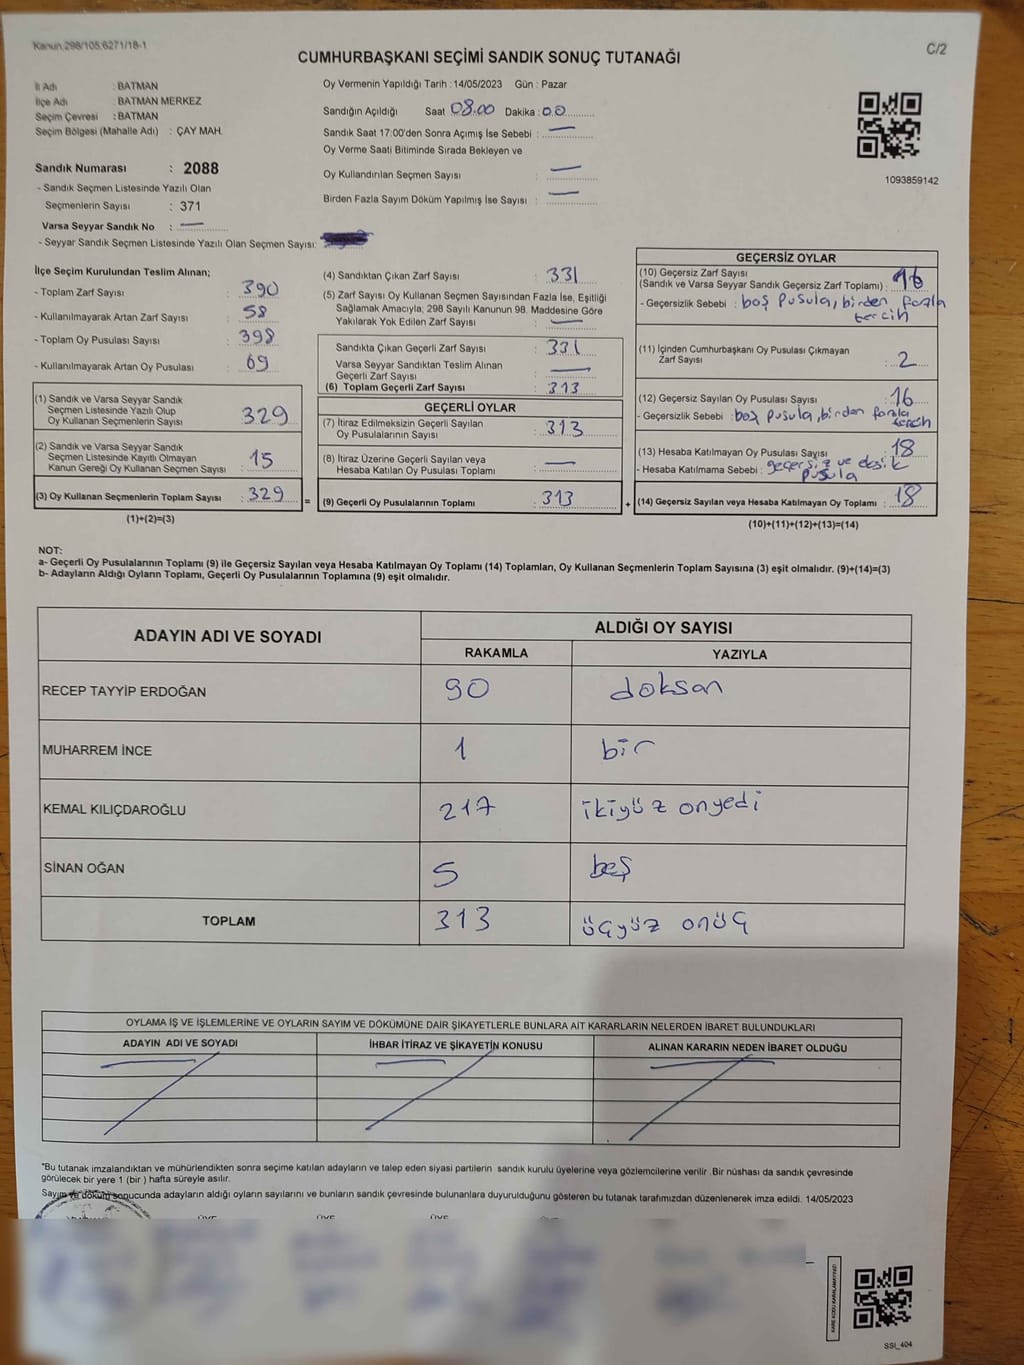 Kanun:298/105;6271/18-1
C/2
CUMHURBAŞKANI SEÇİMİ SANDIK SONUÇ TUTANAĞI
İl Adı : BATMAN
İlçe Adı : BATMAN MERKEZ
Seçim Çevresi : BATMAN
Seçim Bölgesi (Mahalle Adı) : ÇAY MAH.
Sandık Numarası : 2088
- Sandık Seçmen Listesinde Yazılı Olan
Seçmenlerin Sayısı : 371
Varsa Seyyar Sandık No : —
- Seyyar Sandık Seçmen Listesinde Yazılı Olan Seçmen Sayısı:
Oy Vermenin Yapıldığı Tarih : 14/05/2023 Gün : Pazar
Sandığın Açıldığı Saat 08.00 Dakika : 00
Sandık Saat 17:00'den Sonra Açımış İse Sebebi : —
Oy Verme Saati Bitiminde Sırada Bekleyen ve
Oy Kullandırılan Seçmen Sayısı : —
Birden Fazla Sayım Döküm Yapılmış İse Sayısı : —
1093859142
İlçe Seçim Kurulundan Teslim Alınan;
- Toplam Zarf Sayısı : 390
- Kullanılmayarak Artan Zarf Sayısı : 58
- Toplam Oy Pusulası Sayısı : 398
- Kullanılmayarak Artan Oy Pusulası : 69
(1) Sandık ve Varsa Seyyar Sandık
Seçmen Listesinde Yazılı Olup
Oy Kullanan Seçmenlerin Sayısı : 329
(2) Sandık ve Varsa Seyyar Sandık
Seçmen Listesinde Kayıtlı Olmayan
Kanun Gereği Oy Kullanan Seçmen Sayısı : 15
(3) Oy Kullanan Seçmenlerin Toplam Sayısı : 329
(1)+(2)=(3)
(4) Sandıktan Çıkan Zarf Sayısı : 331
(5) Zarf Sayısı Oy Kullanan Seçmen Sayısından Fazla İse, Eşitliği
Sağlamak Amacıyla, 298 Sayılı Kanunun 98. Maddesine Göre
Yakılarak Yok Edilen Zarf Sayısı : —
Sandıkta Çıkan Geçerli Zarf Sayısı : 331
Varsa Seyyar Sandıktan Teslim Alınan
Geçerli Zarf Sayısı : —
(6) Toplam Geçerli Zarf Sayısı : 313
GEÇERLİ OYLAR
(7) İtiraz Edilmeksizin Geçerli Sayılan
Oy Pusulalarının Sayısı : 313
(8) İtiraz Üzerine Geçerli Sayılan veya
Hesaba Katılan Oy Pusulası Toplamı : —
= (9) Geçerli Oy Pusulalarının Toplamı : 313
GEÇERSİZ OYLAR
(10) Geçersiz Zarf Sayısı
(Sandık ve Varsa Seyyar Sandık Geçersiz Zarf Toplamı) : 16
- Geçersizlik Sebebi : boş pusula, birden fazla
tercih
(11) İçinden Cumhurbaşkanı Oy Pusulası Çıkmayan
Zarf Sayısı : 2
(12) Geçersiz Sayılan Oy Pusulası Sayısı : 16
- Geçersizlik Sebebi : boş pusula, birden fazla
tercih
(13) Hesaba Katılmayan Oy Pusulası Sayısı : 18
- Hesaba Katılmama Sebebi : geçersiz ve eksik
pusula
+ (14) Geçersiz Sayılan veya Hesaba Katılmayan Oy Toplamı : 18
(10)+(11)+(12)+(13)=(14)
NOT:
a- Geçerli Oy Pusulalarının Toplamı (9) ile Geçersiz Sayılan veya Hesaba Katılmayan Oy Toplamı (14) Toplamları, Oy Kullanan Seçmenlerin Toplam Sayısına (3) eşit olmalıdır. (9)+(14)=(3)
b- Adayların Aldığı Oyların Toplamı, Geçerli Oy Pusulalarının Toplamına (9) eşit olmalıdır.
ADAYIN ADI VE SOYADI ALDIĞI OY SAYISI
RAKAMLA YAZIYLA
RECEP TAYYİP ERDOĞAN 90 doksan
MUHARREM İNCE 1 bir
KEMAL KILIÇDAROĞLU 217 ikiyüz onyedi
SİNAN OĞAN 5 beş
TOPLAM 313 üçyüz onüç
OYLAMA İŞ VE İŞLEMLERİNE VE OYLARIN SAYIM VE DÖKÜMÜNE DAİR ŞİKAYETLERLE BUNLARA AİT KARARLARIN NELERDEN İBARET BULUNDUKLARI
ADAYIN ADI VE SOYADI İHBAR İTİRAZ VE ŞİKAYETİN KONUSU ALINAN KARARIN NEDEN İBARET OLDUĞU
"Bu tutanak imzalandıktan ve mühürlendikten sonra seçime katılan adayların ve talep eden siyasi partilerin sandık kurulu üyelerine veya gözlemcilerine verilir. Bir nüshası da sandık çevresinde
görülecek bir yere 1 (bir ) hafta süreyle asılır.
Sayım ve döküm sonucunda adayların aldığı oyların sayılarını ve bunların sandık çevresinde bulunanlara duyurulduğunu gösteren bu tutanak tarafımızdan düzenlenerek imza edildi. 14/05/2023
ÜYE ÜYE ÜYE
KARE KODU KARALAMAYINIZ!
SSI_404